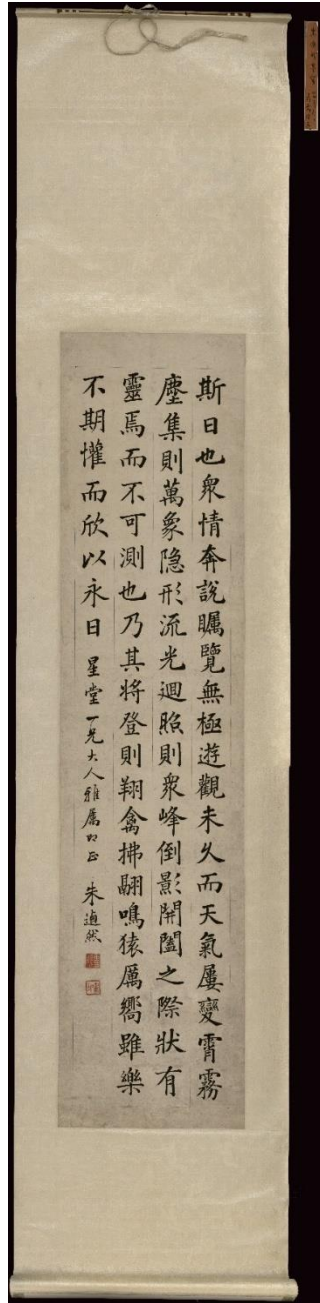 斯日也衆情奔說矚覽無極遊觀未久而天氣屢變霄霧
塵集則萬象隐形流光迴照則衆峰倒影開闔之際狀有
靈焉而不可測也乃其將登則翔禽拂翮鳴猿厲嚮雖樂
不期懽而欣以永日
星堂一兄大人雅屬即正
朱逌然